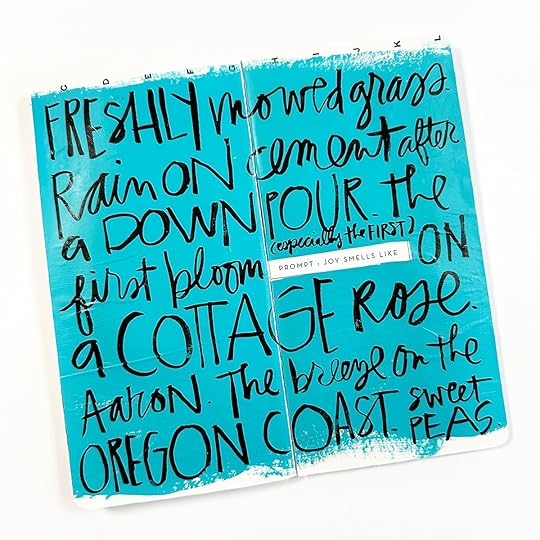 C D E F G H I J K L
FRESHLY mowed grass.
Rain ON cement after
a DOWNPOUR. the
(especially the FIRST)
first bloom ON
PROMPT : JOY SMELLS LIKE
a COTTAGE ROSE.
AaRON. The breeze on the
OREGON COAST. sweet
PEAS.